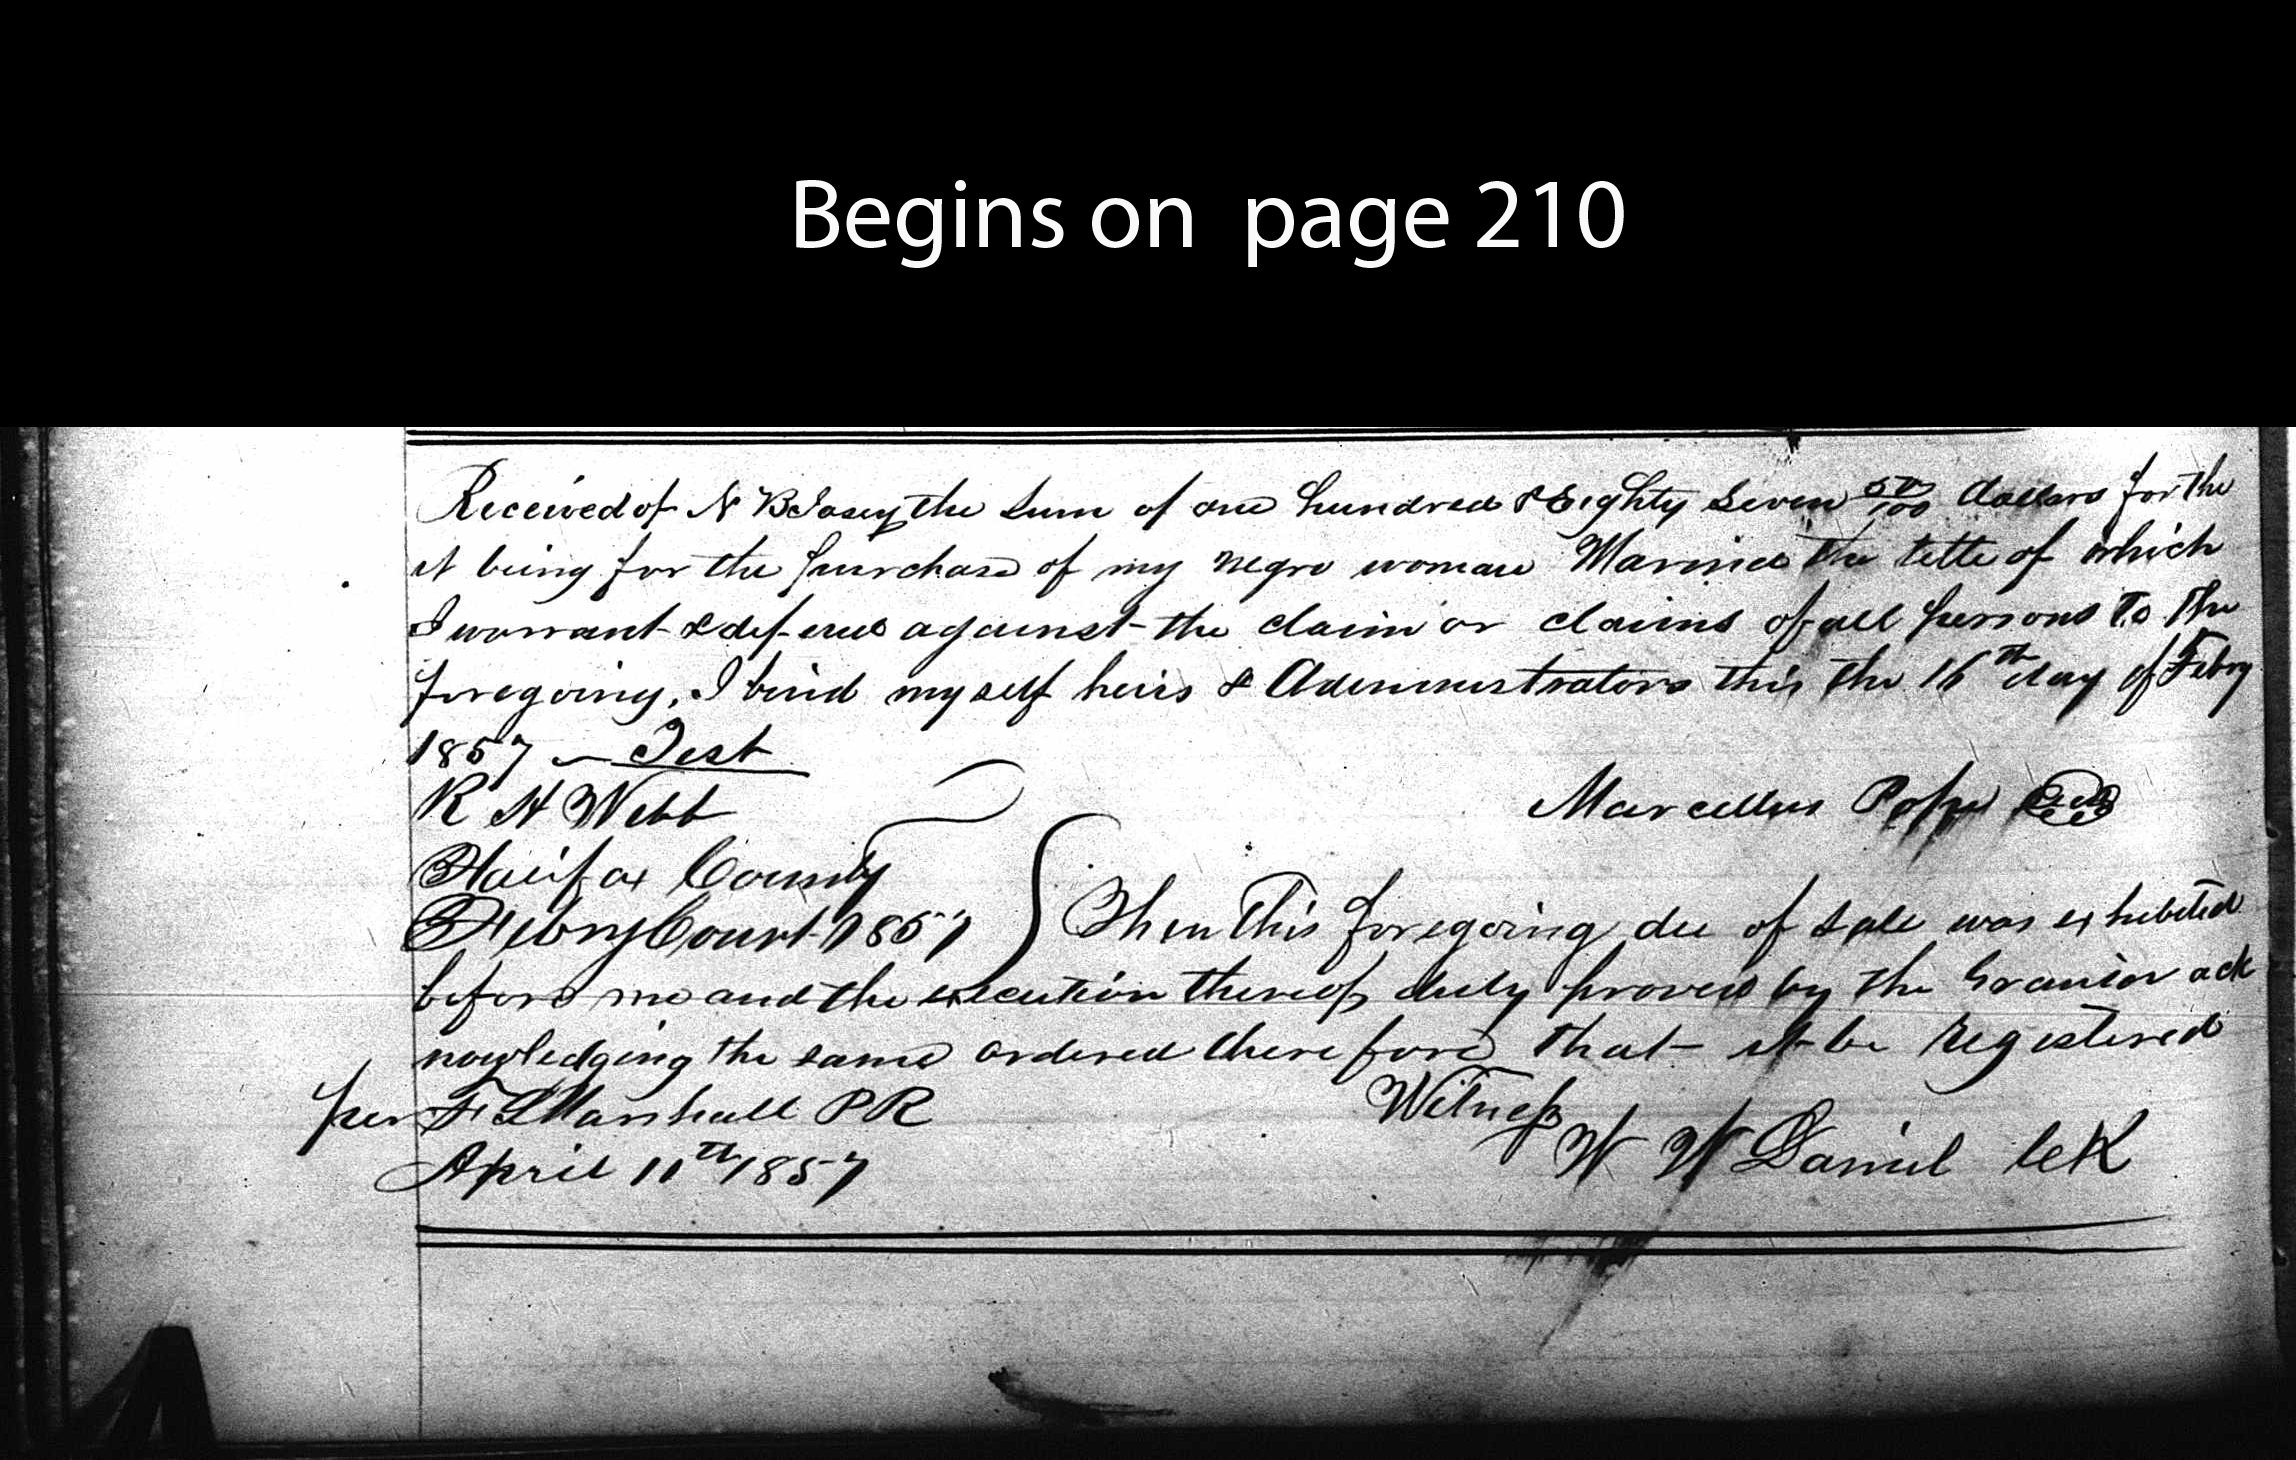 Begins on page 210
Received of N B Josey the Sum of one hundred & Eighty Seven 50/100 dollars for the
it being for the purchase of my negro woman the title of which
I warrant & defend against the claim or claims of all persons To the
foregoing, I bind myself heirs & Administrators this the 16th day of Febry
1857 Test
R H Webb
Marcellus Pope Seal
Halifax County
Febry Court 1857 Then This foregoing of Sale was exhibited
before me and the execution thereof duly proved by the Grantor ack
nowledging the same ordered therefore that it be Registered
per F S Marshall PR Witness
April 11th 1857 W W Daniel Clk